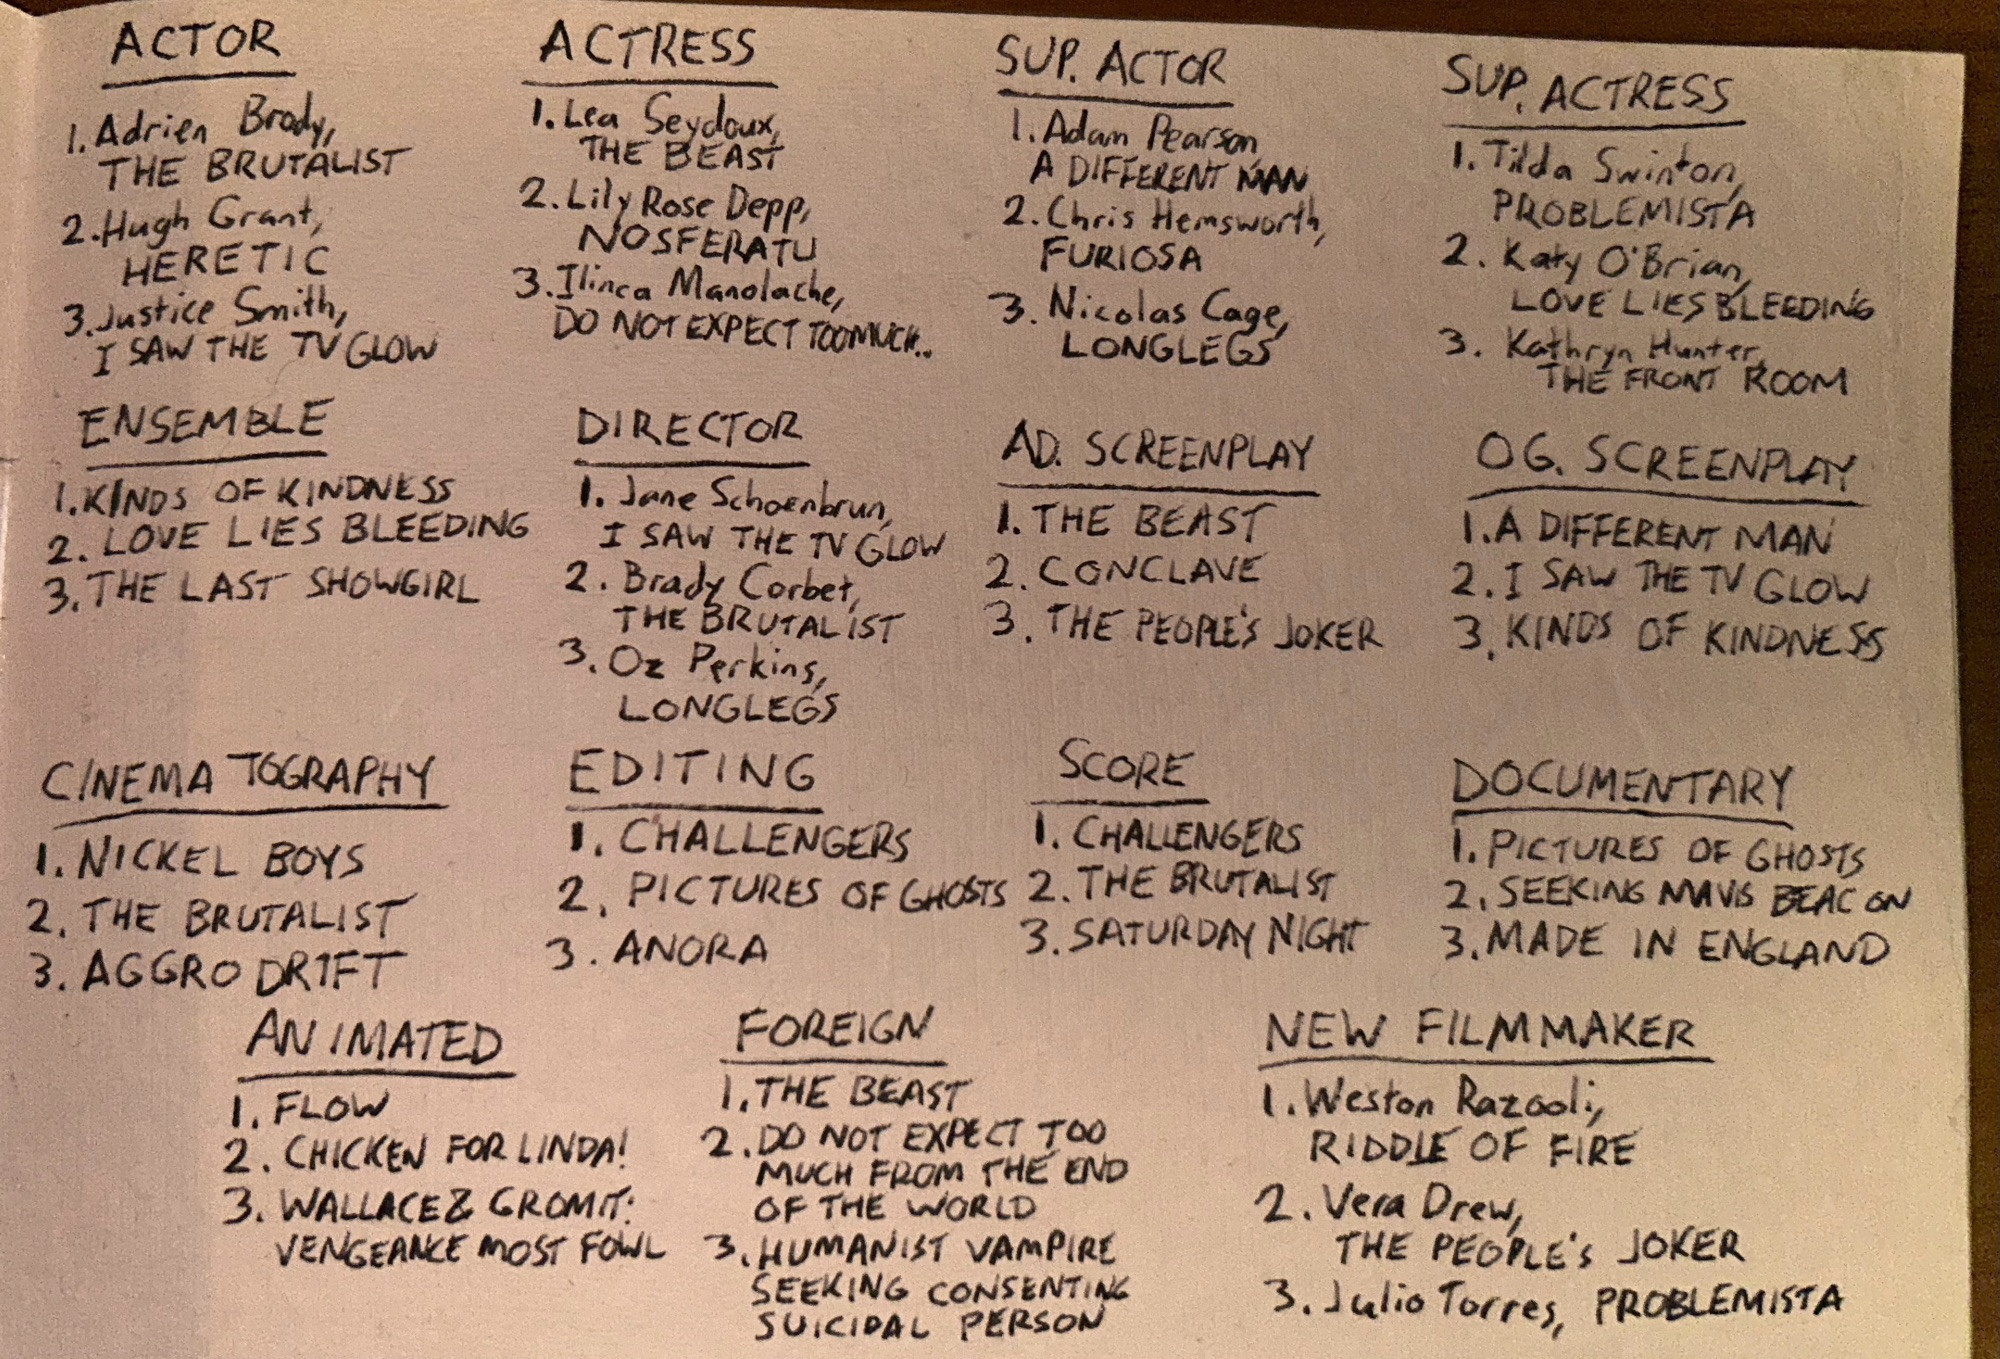 ACTOR
1. Adrien Brody,
THE BRUTALIST
2. Hugh Grant,
HERETIC
3. Justice Smith,
I SAW THE TV GLOW
ACTRESS
1. Lea Seydoux,
THE BEAST
2. Lily Rose Depp,
NOSFERATU
3. Ilinca Manolache,
DO NOT EXPECT TOO MUCH..
SUP. ACTOR
1. Adam Pearson
A DIFFERENT MAN
2. Chris Hemsworth,
FURIOSA
3. Nicolas Cage,
LONGLEGS
SUP. ACTRESS
1. Tilda Swinton,
PROBLEMISTA
2. Katy O'Brian,
LOVE LIES BLEEDING
3. Kathryn Hunter,
THE FRONT ROOM
ENSEMBLE
1. KINDS OF KINDNESS
2. LOVE LIES BLEEDING
3. THE LAST SHOWGIRL
DIRECTOR
1. Jane Schoenbrun,
I SAW THE TV GLOW
2. Brady Corbet,
THE BRUTALIST
3. Oz Perkins,
LONGLEGS
AD. SCREENPLAY
1. THE BEAST
2. CONCLAVE
3. THE PEOPLE'S JOKER
OG. SCREENPLAY
1. A DIFFERENT MAN
2. I SAW THE TV GLOW
3. KINDS OF KINDNESS
CINEMATOGRAPHY
1. NICKEL BOYS
2. THE BRUTALIST
3. AGGRO DR1FT
EDITING
1. CHALLENGERS
2. PICTURES OF GHOSTS
3. ANORA
SCORE
1. CHALLENGERS
2. THE BRUTALIST
3. SATURDAY NIGHT
DOCUMENTARY
1. PICTURES OF GHOSTS
2. SEEKING MAVIS BEACON
3. MADE IN ENGLAND
ANIMATED
1. FLOW
2. CHICKEN FOR LINDA!
3. WALLACE & GROMIT:
VENGEANCE MOST FOWL
FOREIGN
1. THE BEAST
2. DO NOT EXPECT TOO
MUCH FROM THE END
OF THE WORLD
3. HUMANIST VAMPIRE
SEEKING CONSENTING
SUICIDAL PERSON
NEW FILMMAKER
1. Weston Razooli,
RIDDLE OF FIRE
2. Vera Drew,
THE PEOPLE'S JOKER
3. Julio Torres, PROBLEMISTA